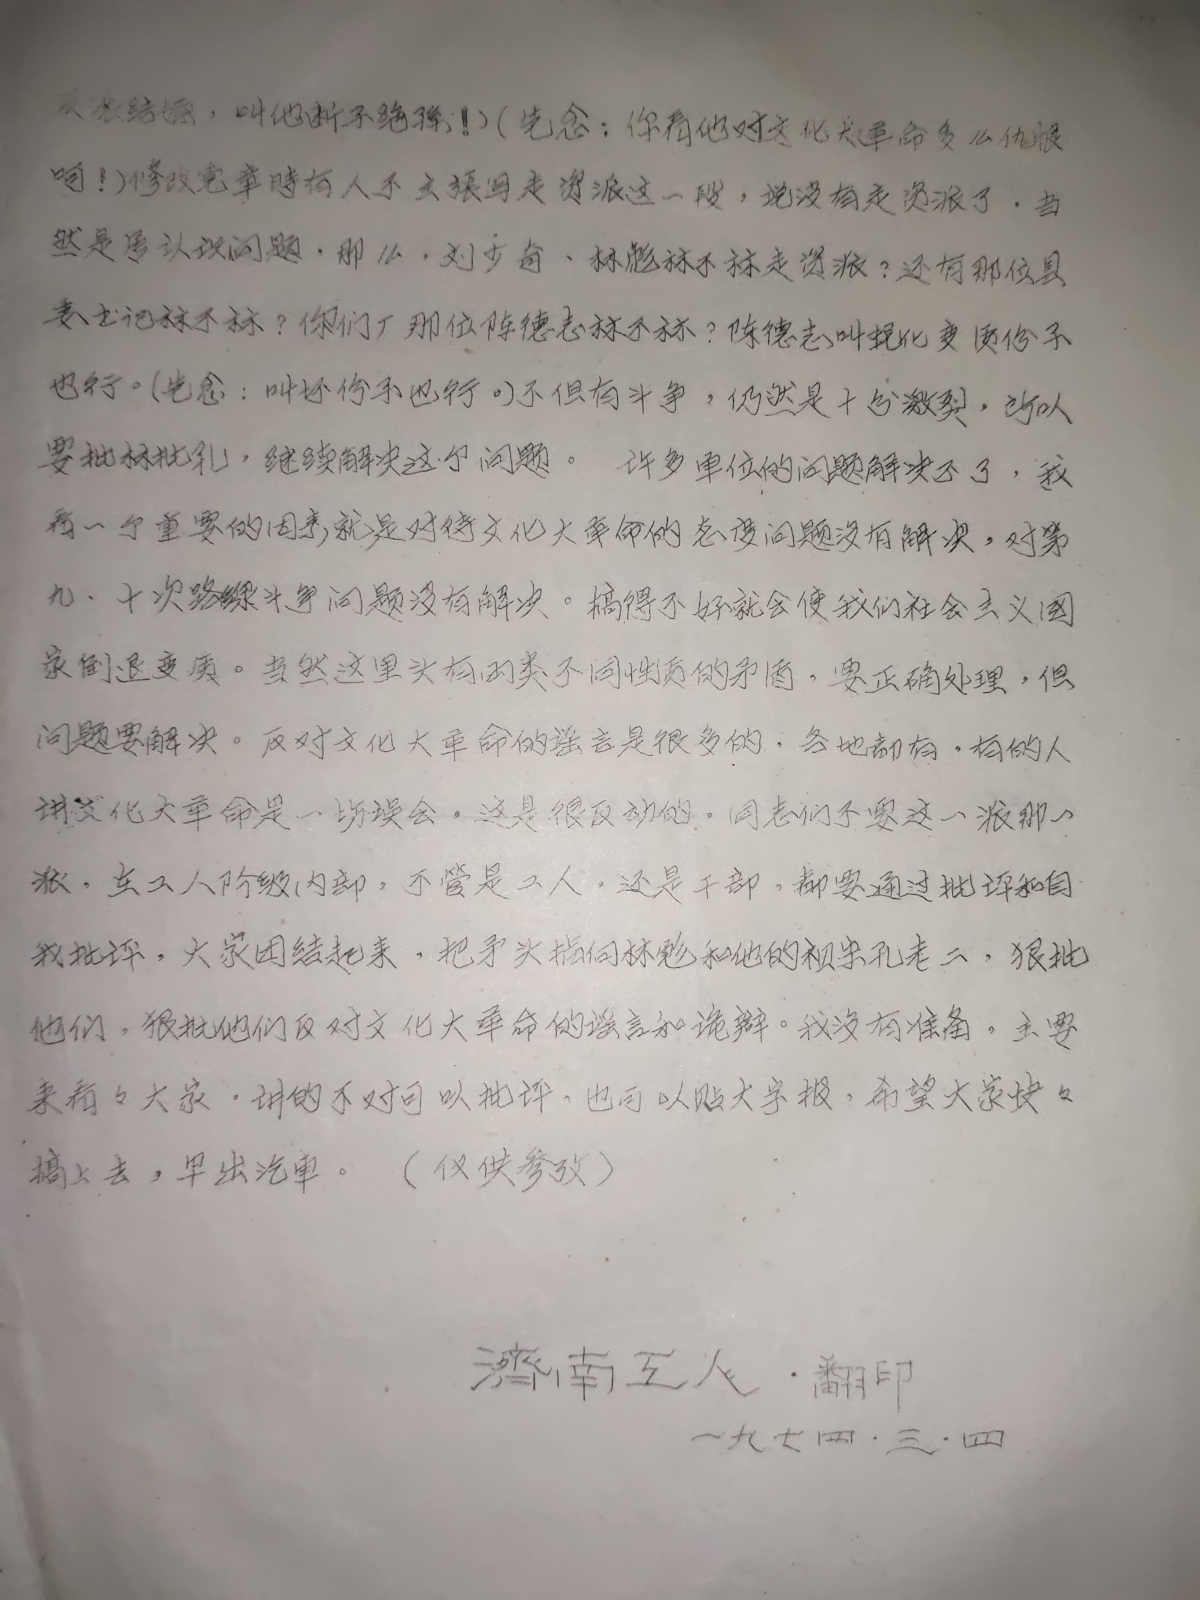 结》,叫他断子绝孙!)(先念:你看他对文化大革命多么仇恨
啊!)修改党章时有人不主张写走资派这一段,说没有走资派了.当
然是属认识问题.那么.刘少奇、林彪祘不祘走资派?还有那位县
委书记祘不祘?你们厂那位陈德志祘不祘?陈德志叫蜕化变质份子
也行。(先念:叫坏份子也行。)不但有斗争,仍然是十分激裂,所以
要批林批孔,继续解决这个问题。 许多单位的问题解决不了,我
看一个重要的因素,就是对待文化大革命的态度问题没有解决,对第
九.十次路线斗争问题没有解决。搞得不好就会使我们社会主义国
家倒退变质。当然这里头有两类不同性质的矛盾,要正确处理,但
问题要解决。反对文化大革命的谣言是很多的,各地都有,有的人
讲文化大革命是一场误会,这是很反动的,同志们不要这一派那一
派,在工人阶级内部,不管是工人,还是干部,都要通过批评和自
我批评,大家团结起来,把矛头指向林彪和他的祖宗孔老二,狠批
他们,狠批他们反对文化大革命的谣言和诡辩。我没有准备,主要
来看々大家,讲的不对可以批评,也可以贴大字报,希望大家快々
搞上去,早出汽車。 (仅供参攷)
濟南工人·翻印
一九七四·三·四